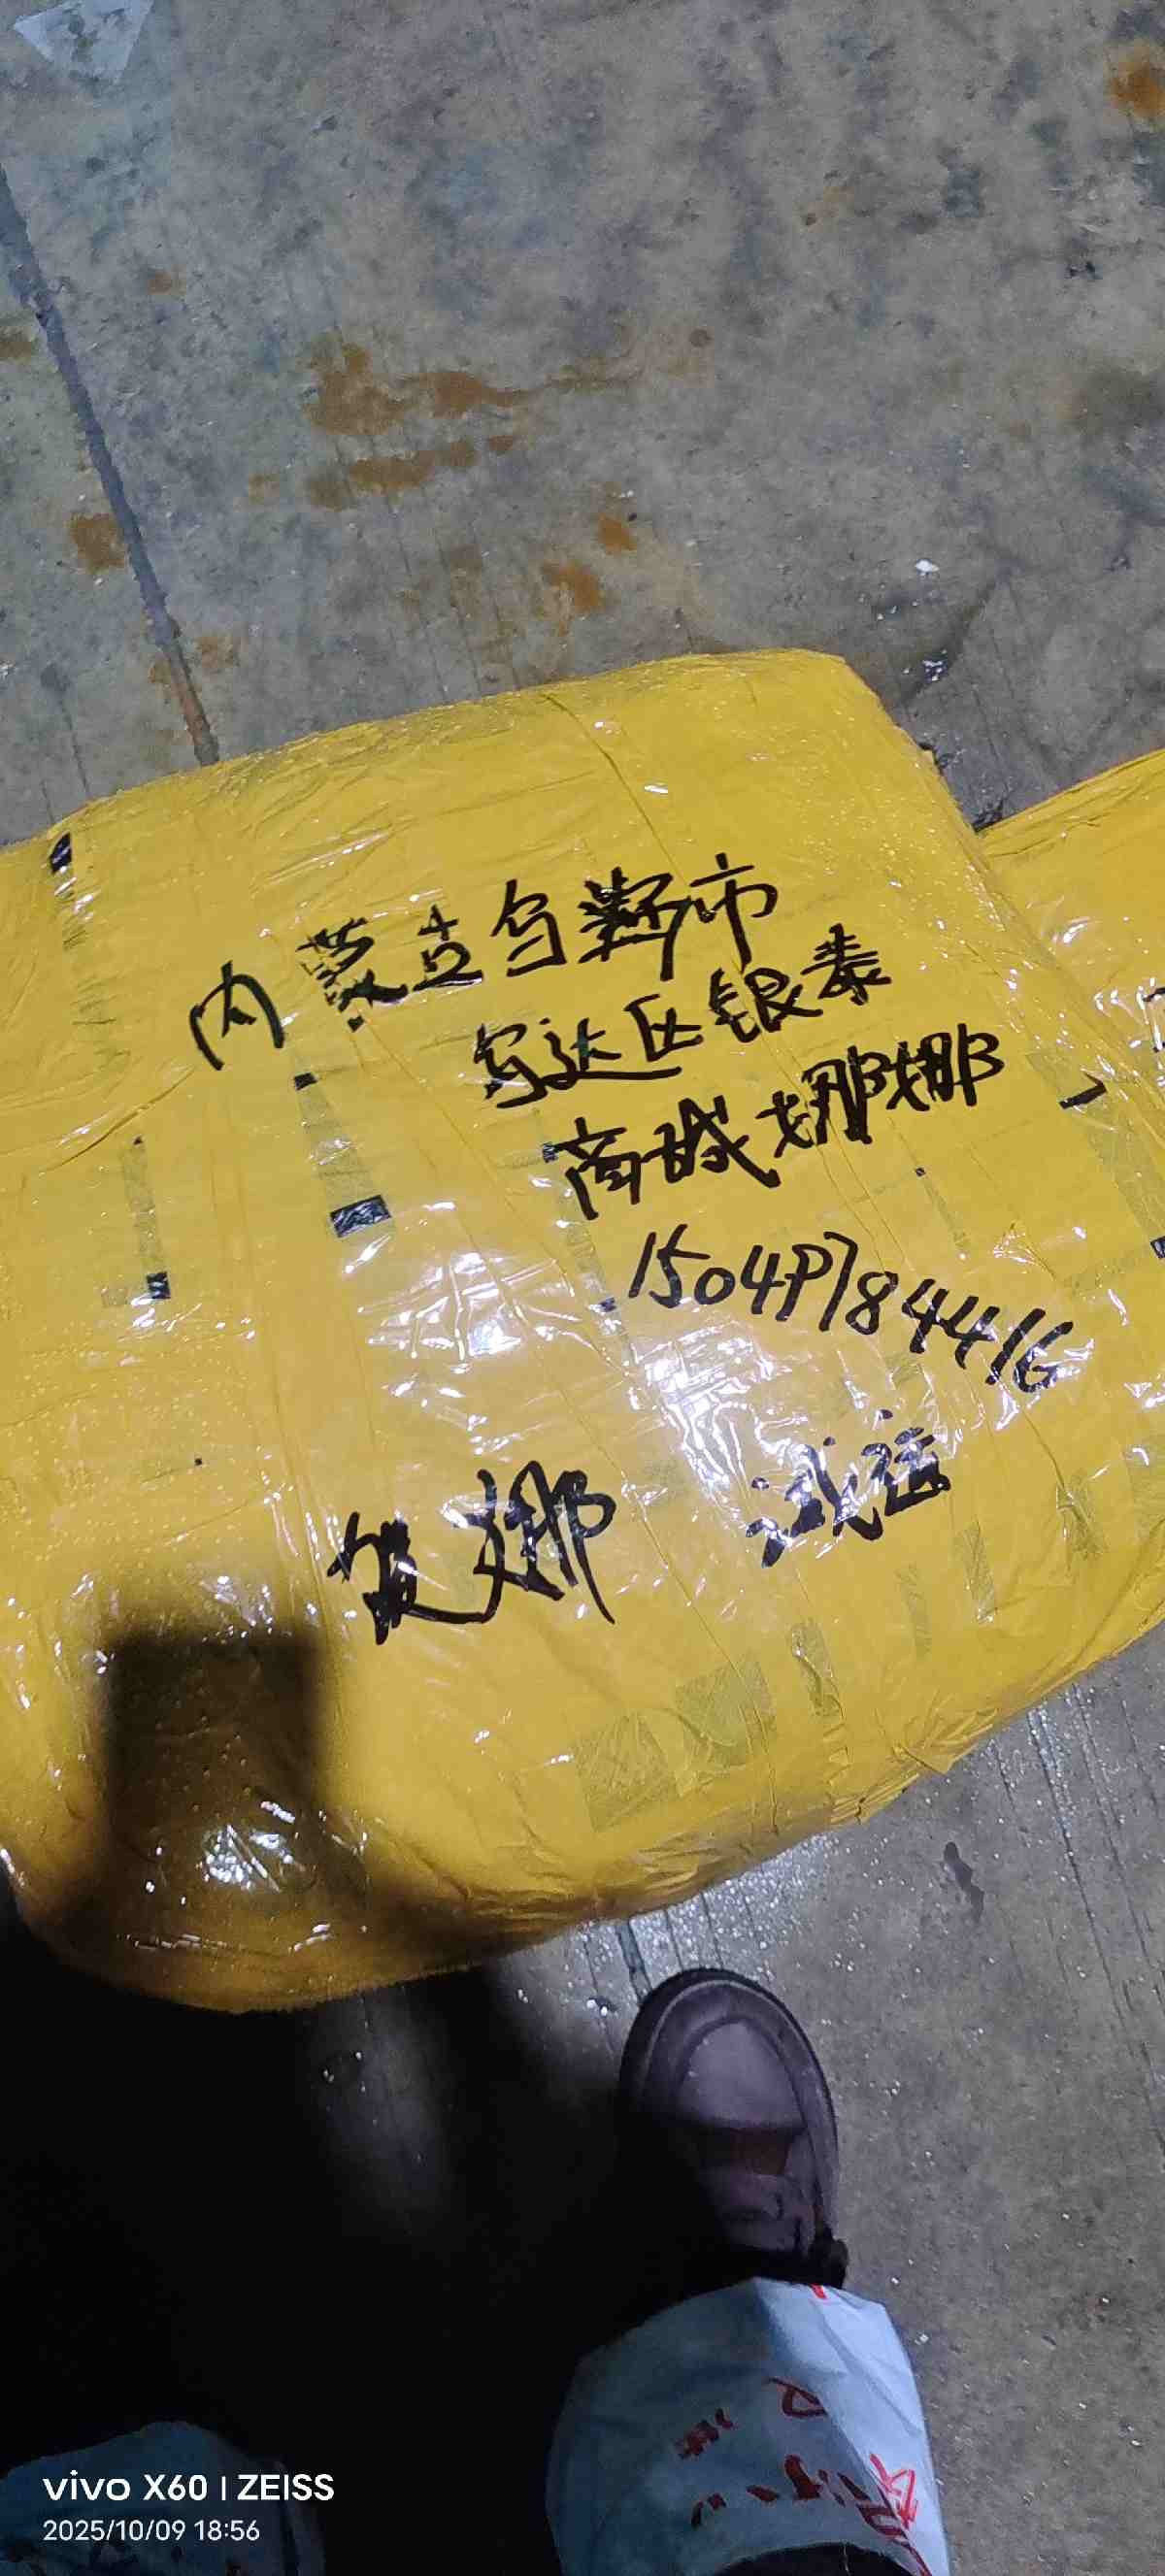 内蒙古乌海市
乌达区银泰
商城娜娜
15049784416
娜
vivo X60 | ZEISS
2025/10/09 18:56